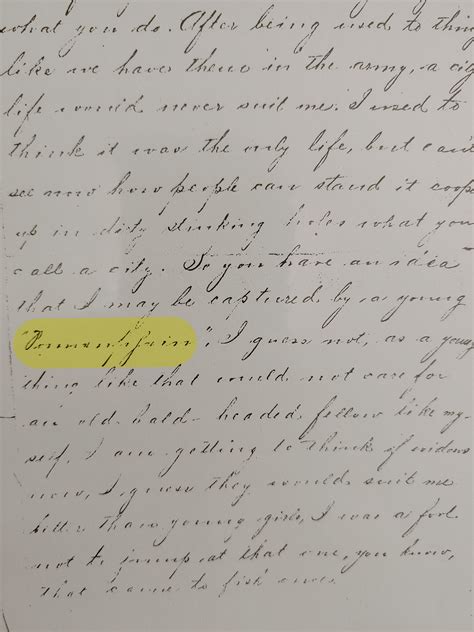 what you do. After being used to thin
like we have them in the army, a city
life would never suit me. I used to
think it was the only life, but cant
see now how people can stand it coop
up in dirty stinking holes what you
call a city. So you have an idea
that I may be captured by a young
I guess not, as a young
thing like that would not care for
an old bald-headed fellow like my-
self. I am getting to think of widows
now, I guess they would suit me
better than young girls, I was a fool
not to jump at that one, you know,
that came to fish once.